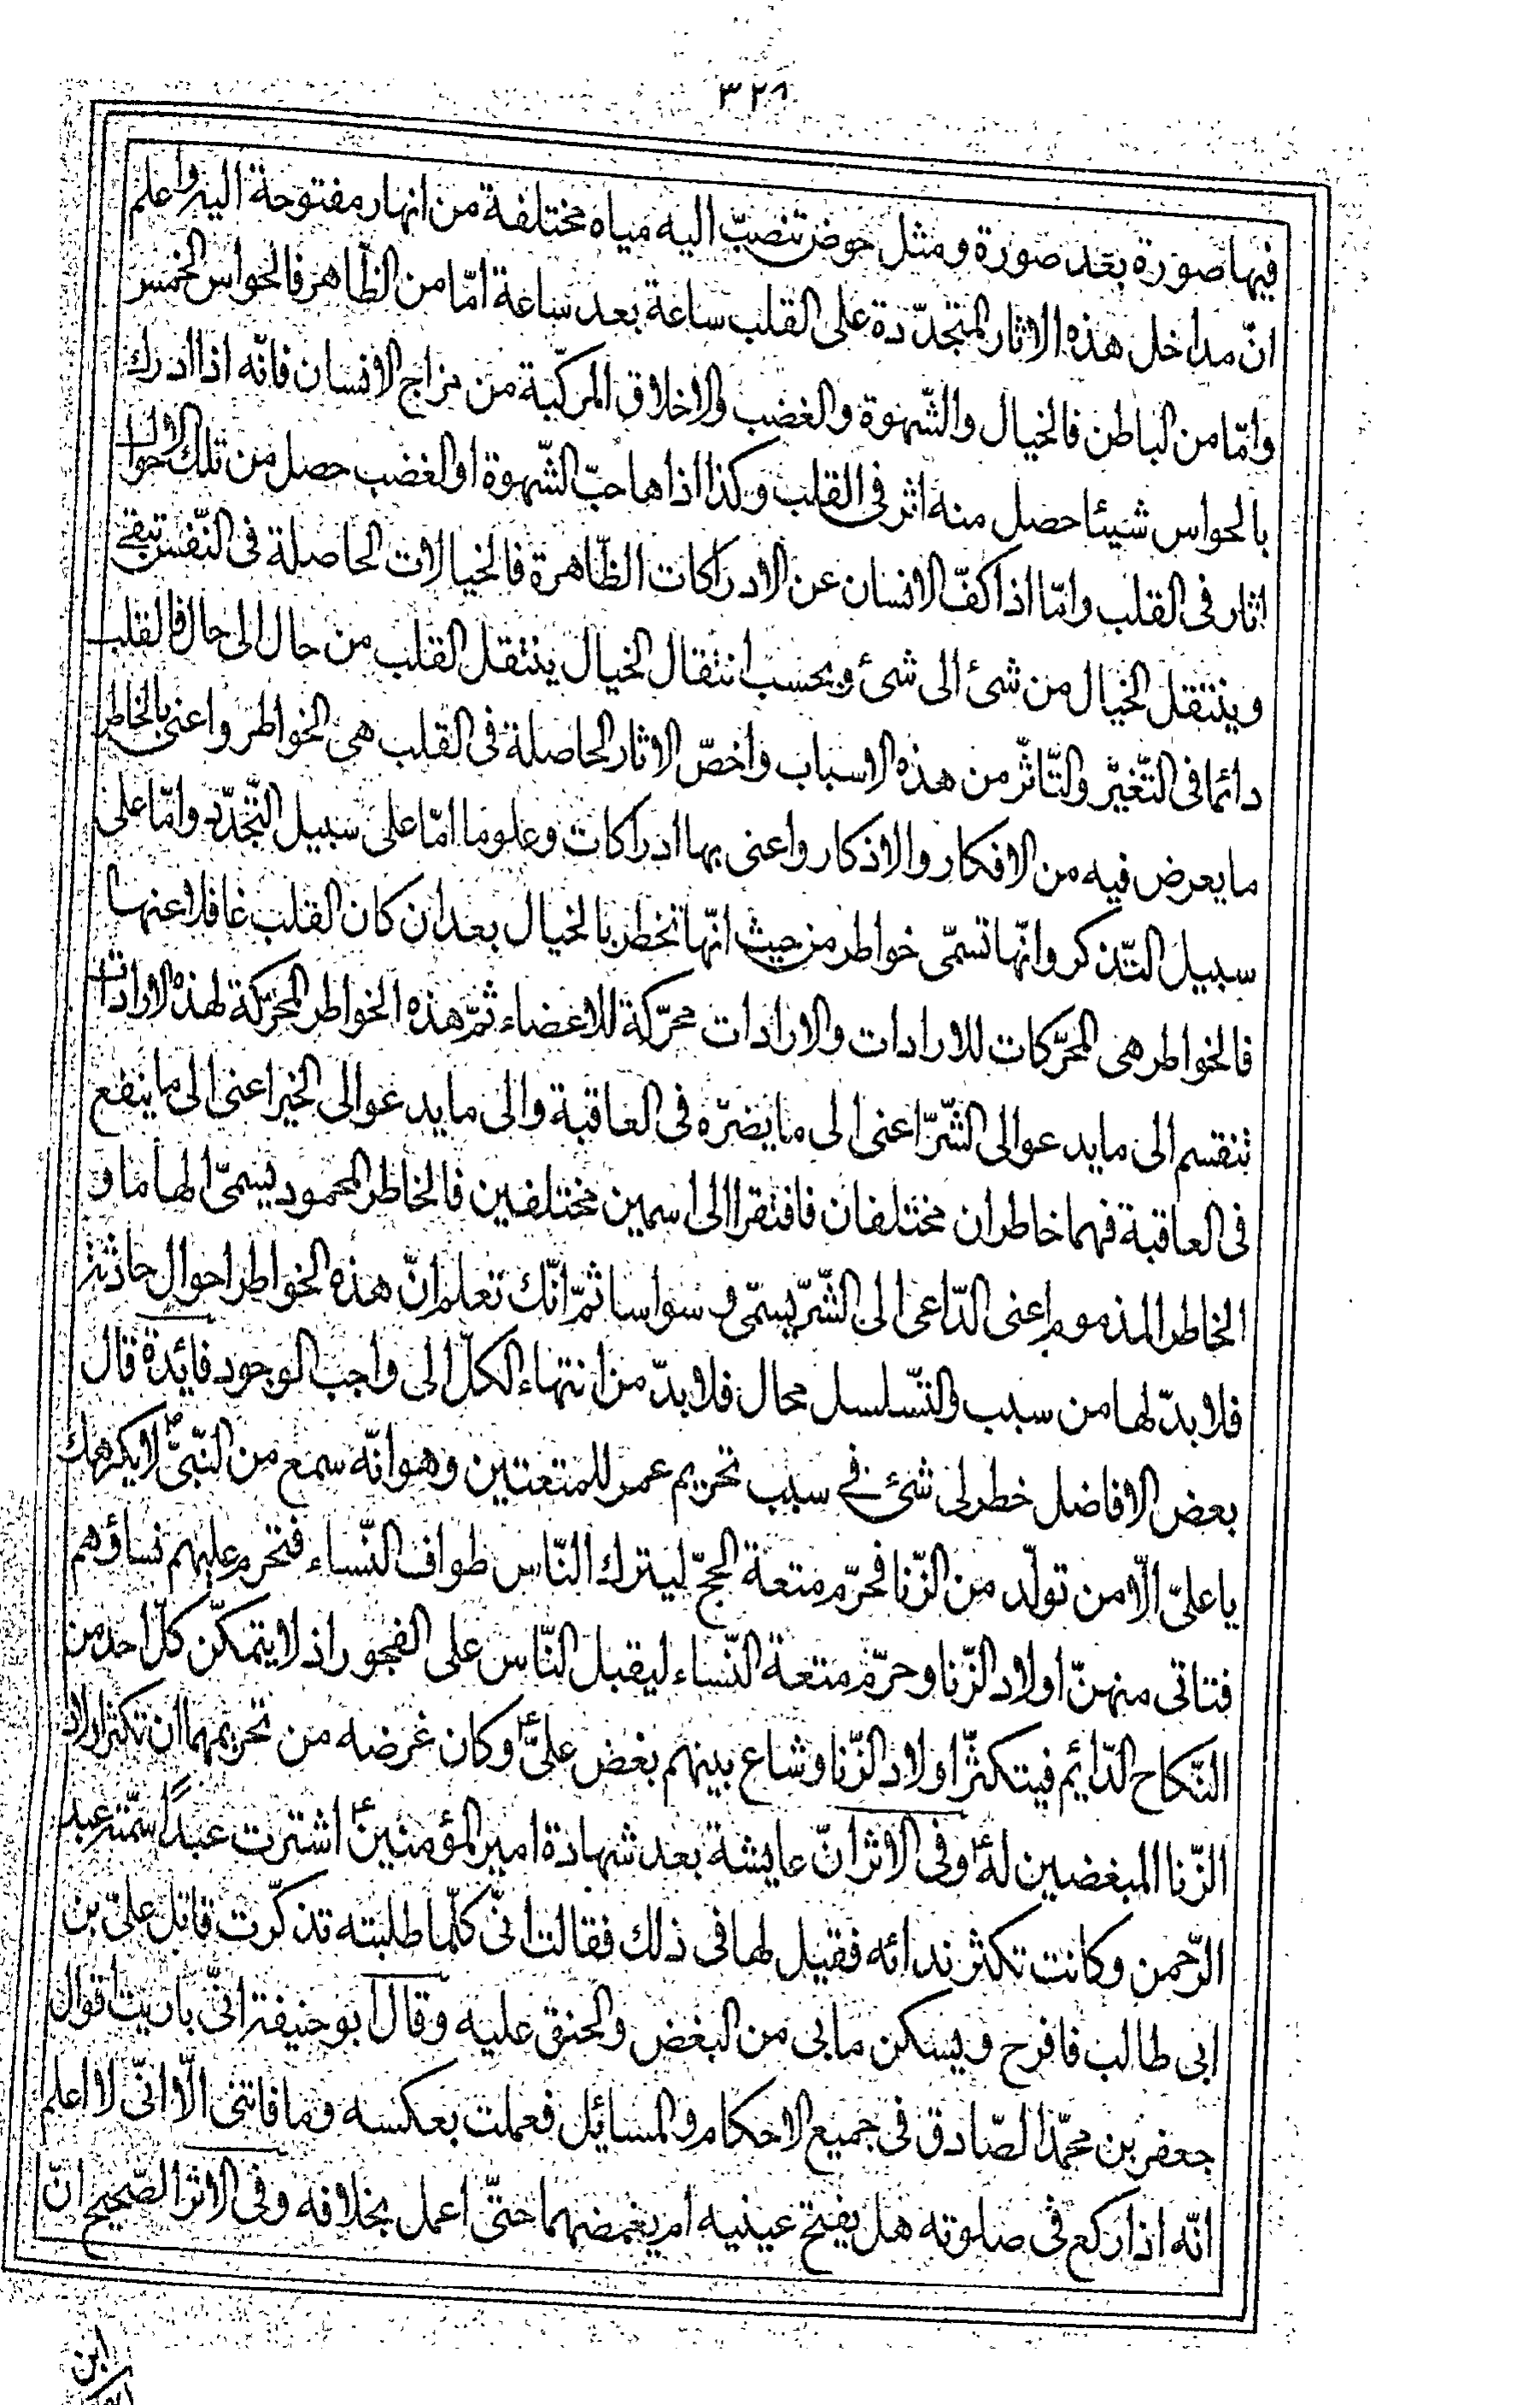 ٣٢٨
فيها صورة بعد صورة ومثل حوض تنصبّ اليه مياه مختلفة من انهار مفتوحة اليه واعلم
انّ مداخل هذه الاثار المتجدّدة على القلب ساعة بعد ساعة امّا من الظّاهر فالحواس الخمس
وامّا من الباطن فالخيال والشّهوة والغضب والاخلاق المركّبة من مزاج الانسان فانّه اذا ادرك
بالحواس شيئا حصل منه اثر فى القلب وكذا اذا هاجت الشّهوة او الغضب حصل من تلك الاحوال
اثار فى القلب وامّا اذا كفّ الانسان عن الادراكات الظّاهرة فالخيالات الحاصلة فى النّفس تبقى
وينتقل الخيال من شئ الى شئ وبحسب انتقال الخيال ينتقل القلب من حال الى حال فالقلب
دائما فى التّغيّر والتّاثّر من هذه الاسباب واخصّ الاثار الحاصلة فى القلب هى الخواطر واعنى بالخاطر
ما يعرض فيه من الافكار والاذكار واعنى بها ادراكات وعلوما امّا على سبيل التّجدّد وامّا على
سبيل التّذكر وانّها تسمّى خواطر من حيث انّها تخطر بالخيال بعد ان كان القلب غافلا عنها
فالخواطر هى المحرّكات للارادات والارادات محرّكة للاعضاء ثمّ هذه الخواطر المحرّكة لهذه الارادات
تنقسم الى ما يدعو الى الشّرّ اعنى الى ما يضرّه فى العاقبة والى ما يدعو الى الخير اعنى الى ما ينفع
فى العاقبة فهما خاطران مختلفان فافتقرا الى اسمين مختلفين فالخاطر المحمود يسمّى الهاما و
الخاطر المذموم اعنى الدّاعى الى الشّرّ يسمّى وسواسا ثمّ انّك تعلم انّ هذه الخواطر احوال حادثة
فلا بدّ لها من سبب والتّسلسل محال فلا بدّ من انتهاء الكلّ الى واجب الوجود فائدة قال
بعض الافاضل خطر لى شئ فى سبب تحريم عمر للمتعتين وهو انّه سمع من النّبىّ ص لا يكرهك
يا علىّ الّا من تولّد من الزّنا فحرّم متعة الحجّ ليترك النّاس طواف النّساء فتحرم عليهم نساؤهم
فتاتى منهنّ اولاد الزّنا وحرّم متعة النّساء ليقبل النّاس على الفجور اذ لا يتمكّن كلّ احد من
النّكاح الدّائم فيتكثّر اولاد الزّنا وشاع بينهم بغض علىّ ع وكان غرضه من تحريمهما ان تكثر اولاد
الزّنا المبغضين له ع وفى الاثر انّ عايشة بعد شهادة امير المؤمنين ع اشترت عبدًا سمّته عبد
الرّحمن وكانت تكثر ندائه فقيل لها فى ذلك فقالت انّى كلّما طلبته تذكّرت قاتل علىّ بن
ابى طالب فافرح ويسكن ما بى من البغض والحنق عليه وقال ابو حنيفة انّى باريت اقوال
جعفر بن محمّد الصّادق فى جميع الاحكام والمسائل فعملت بعكسه وما فاتنى الّا انّى لا اعلم
انّه اذا ركع فى صلوته هل يفتح عينيه ام يغمضهما حتّى اعمل بخلافه وفى الاثر الصّحيح انّ
ابن